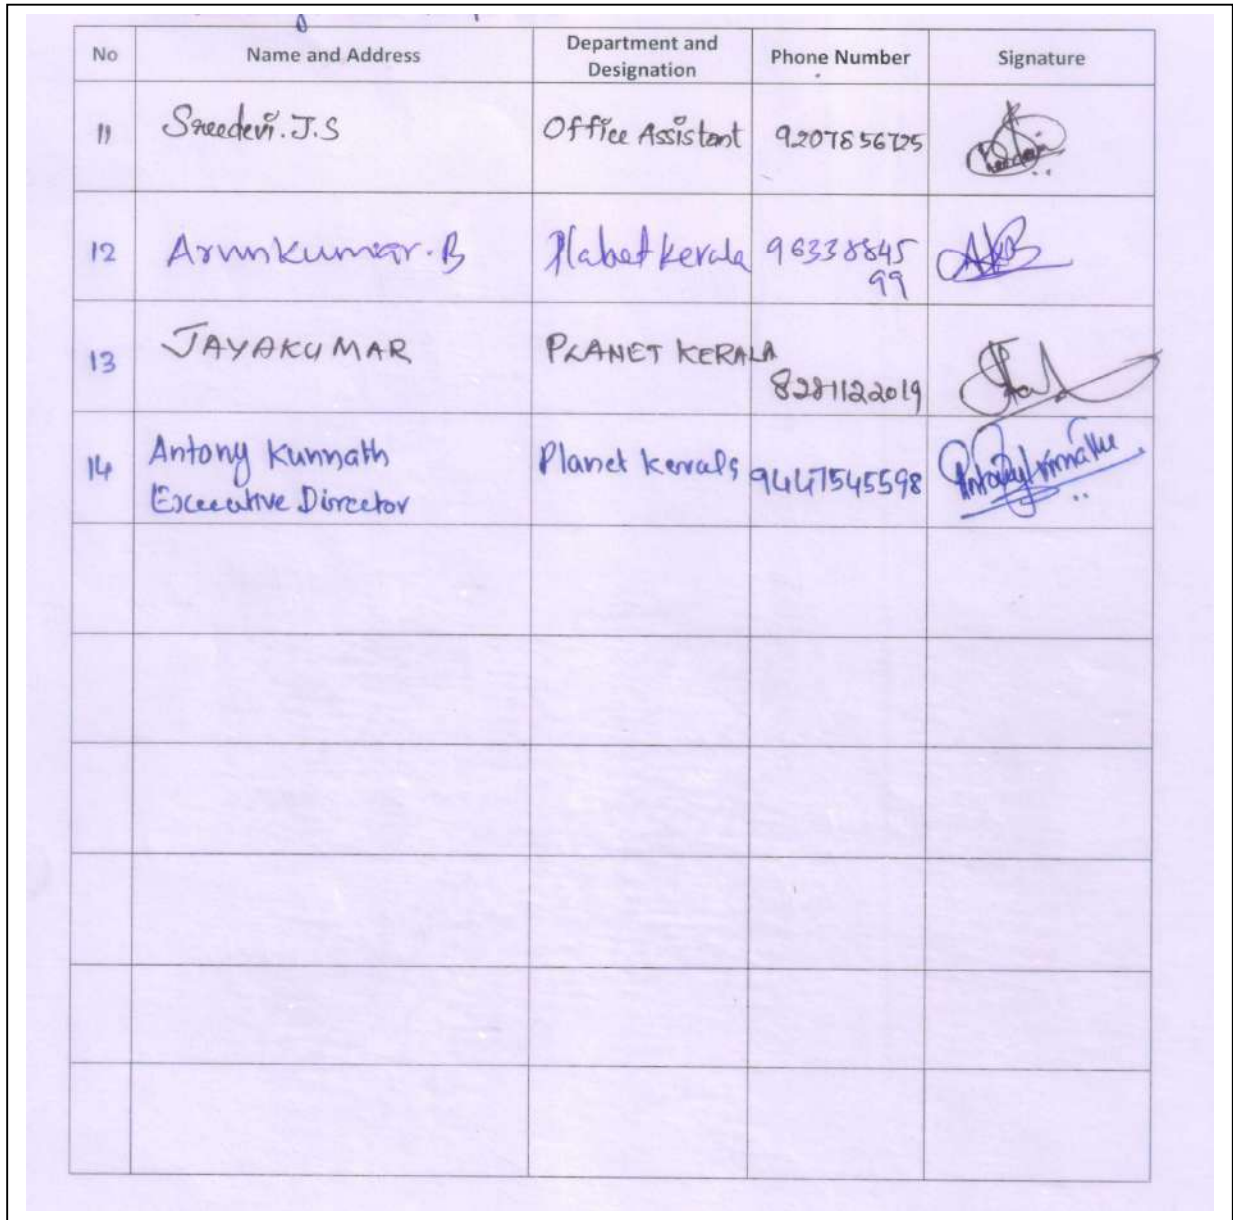 No Name and Address Department and Designation Phone Number Signature
11 Sreedevi.J.S Office Assistant 9207856725
12 Arunkumar.B Planet Kerala 96338845
99
13 JAYAKUMAR PLANET KERALA
8281122019
14 Antony Kunnath Planet Kerala 9447545598 Antony Kunnathu
Executive Director